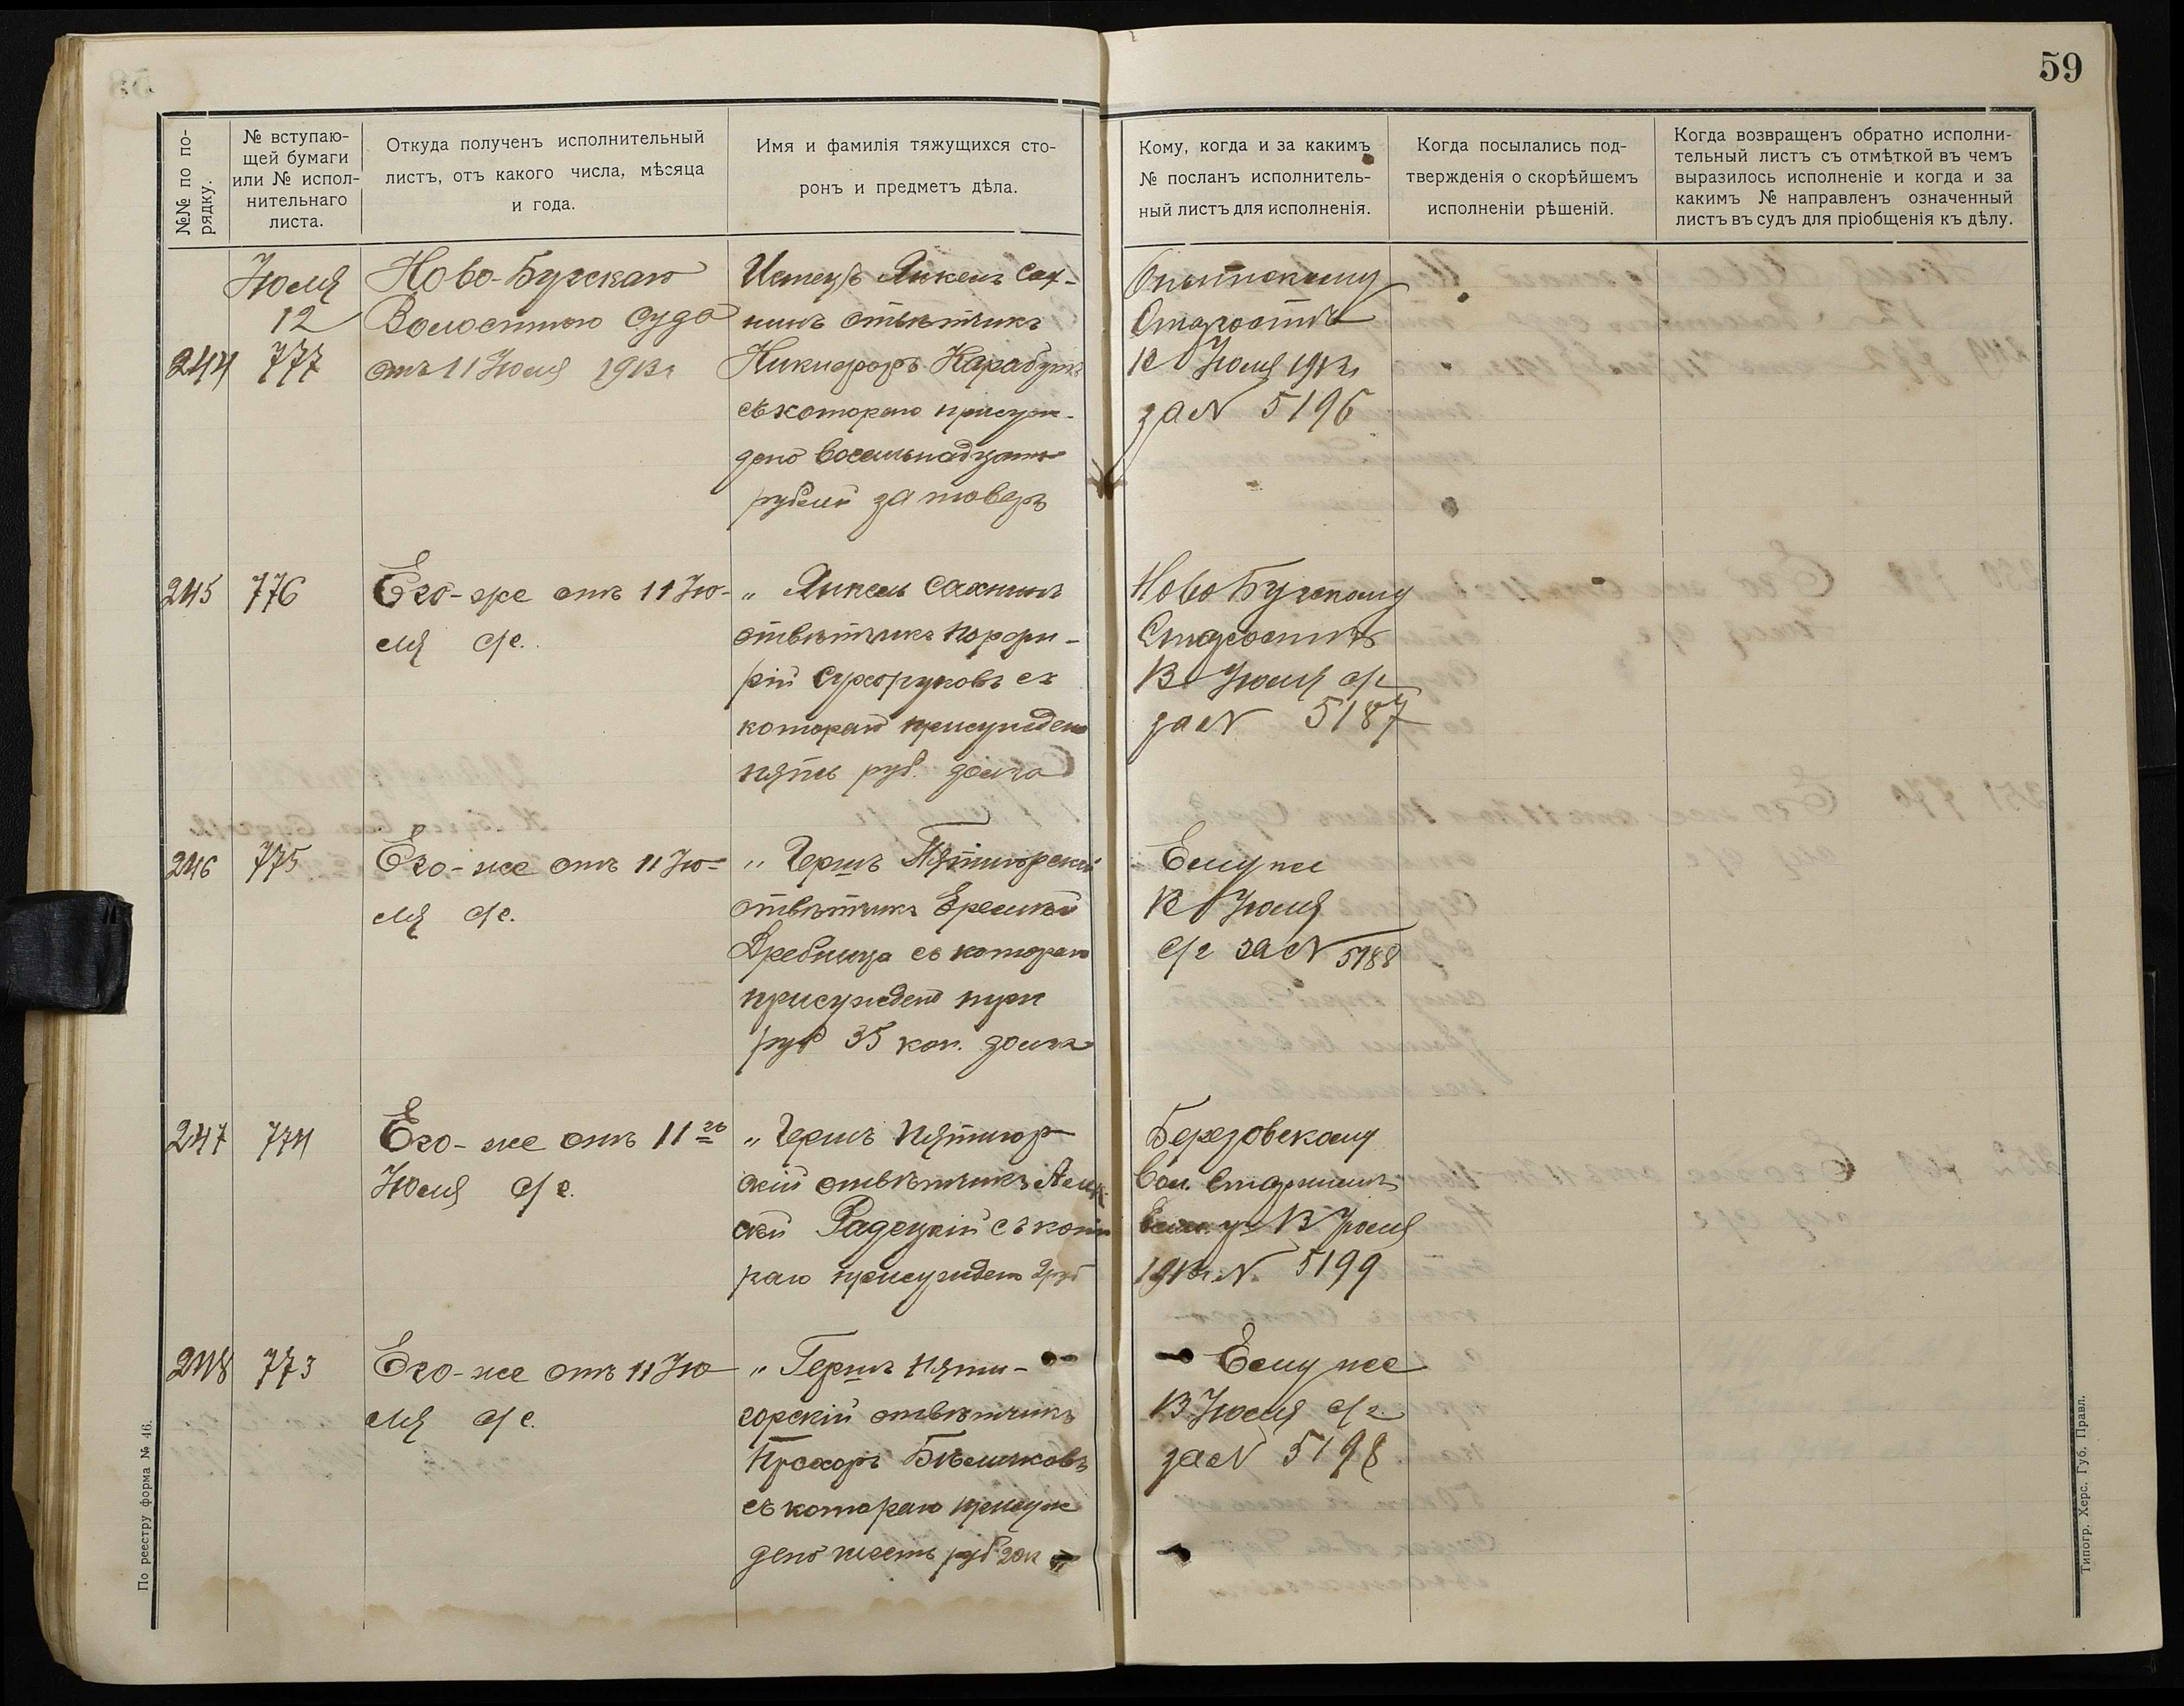 59
№№ по по-
рядку.
№ вступаю-
щей бумаги
или № испол-
нительнаго
листа.
Откуда полученъ исполнительный
листъ, отъ какого числа, мѣсяца
и года.
Имя и фамилія тяжущихся сто-
ронъ и предметъ дѣла.
Кому, когда и за какимъ
№ посланъ исполнитель-
ный листъ для исполненія.
Когда посылались под-
твержденія о скорѣйшемъ
исполненіи рѣшеній.
Когда возвращенъ обратно исполни-
тельный листъ съ отмѣткой въ чемъ
выразилось исполненіе и когда и за
какимъ № направленъ означенный
листъ въ судъ для пріобщенія къ дѣлу.
Июля
12
244 777
Ново-Бугскаго
Волостного Суда
отъ 11 Июля 1912г
Истецъ Янкель Сах-
нинъ отвѣтчикъ
Никифоръ
съ котораго присуж-
дено восемьнадцать
рублей за товаръ
Старостѣ
12 Июля 1912г
за № 5196
245 776
Его-же отъ 11 Ию-
ля с/г.
" Янкель Сахнинъ
отвѣтчикъ Порфи-
рій Сухоруковъ съ
котораго присуждено
пять руб. долга
Ново Бугскому
Старостѣ
13 Июля с/г
за № 5187
246 775
Его-же отъ 11 Ию-
ля с/г.
" Гершъ Пятигорскій
отвѣтчикъ Еремѣй
Дребница съ котораго
присуждено
руб 35 коп. долга
Ему же
13 Июля
с/г за № 5188
247 774
Его-же отъ 11го
Июля с/г.
" Гершъ Пятигор-
скій отвѣтчикъ Алек-
сѣй Радецкій съ кото
раго присуждено 2руб
Березовскому
Вол. Старшинѣ
13 Июля
1912г. № 5199
248 773
Его-же отъ 11 Ию-
ля с/г.
" Гершъ Пяти-
горскій отвѣтчикъ
Прохоръ Бѣлычковъ
съ котораго присуж
дено шесть руб 20к
Ему же
13 Июля с/г
за № 5198
По реестру форма № 46.
Типогр. Херс. Губ. Правл.